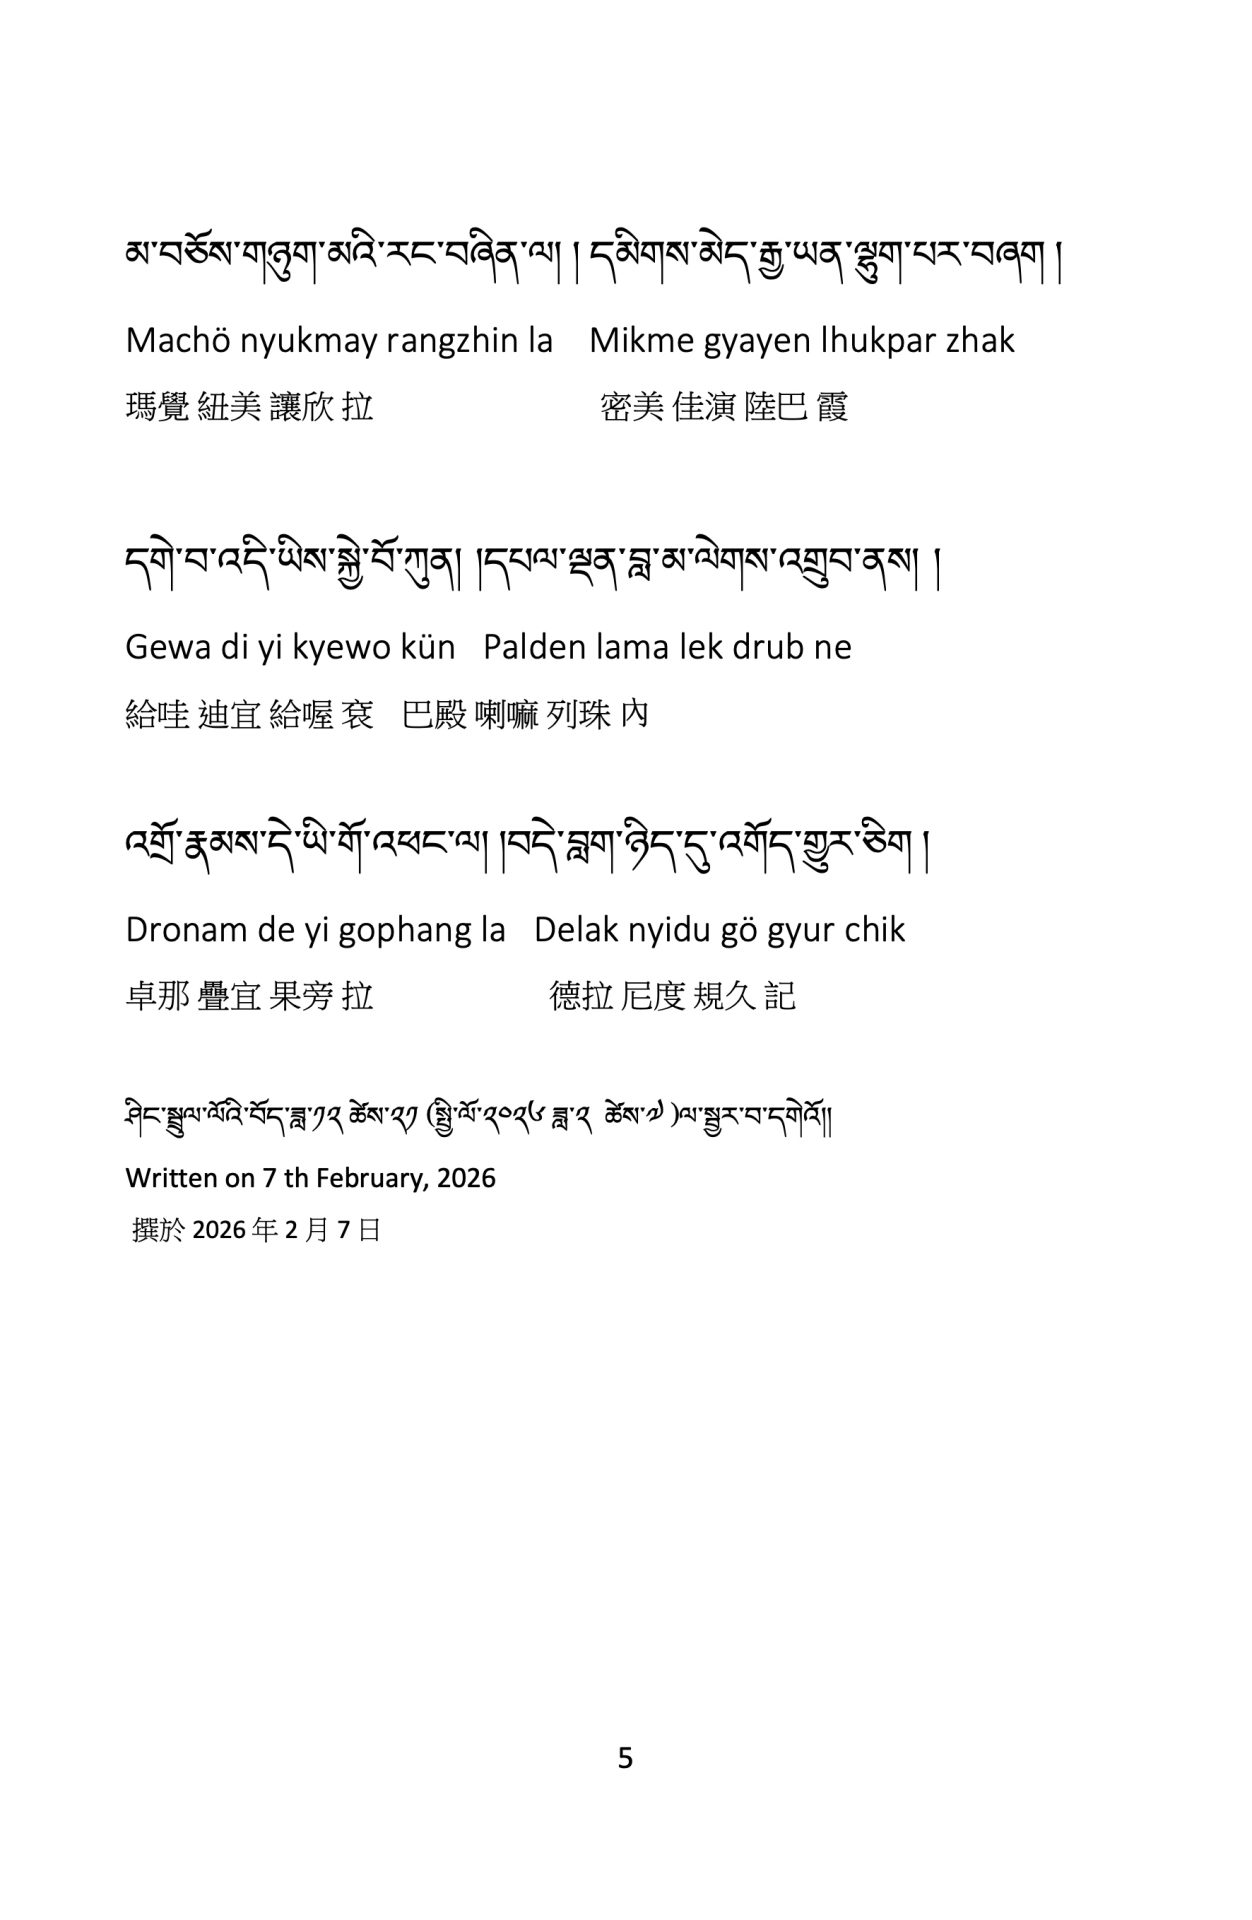 མ་བཅོས་གཉུག་མའི་རང་བཞིན་ལ། །དམིགས་མེད་རྒྱ་ཡན་ལྷུག་པར་བཞག །
Machö nyukmay rangzhin la Mikme gyayen lhukpar zhak
瑪覺 紐美 讓欣 拉 密美 佳演 陸巴 霞
དགེ་བ་འདི་ཡིས་སྐྱེ་བོ་ཀུན། །དཔལ་ལྡན་བླ་མ་ལེགས་འགྲུབ་ནས། །
Gewa di yi kyewo kün Palden lama lek drub ne
給哇 迪宜 給喔 袞 巴殿 喇嘛 列珠 內
འགྲོ་རྣམས་དེ་ཡི་གོ་འཕང་ལ། །བདེ་བླག་ཉིད་དུ་འགོད་གྱུར་ཅིག །
Dronam de yi gophang la Delak nyidu gö gyur chik
卓那 疊宜 果旁 拉 德拉 尼度 規久 記
ཤིང་སྦྲུལ་ལོའི་བོད་ཟླ་༡༢ ཚེས་༢༡ (སྤྱི་ལོ་༢༠༢༦ ཟླ་༢ ཚེས་༧ )ལ་སྦྱར་བ་དགེའོ།།
Written on 7 th February, 2026
撰於 2026 年 2 月 7 日
5